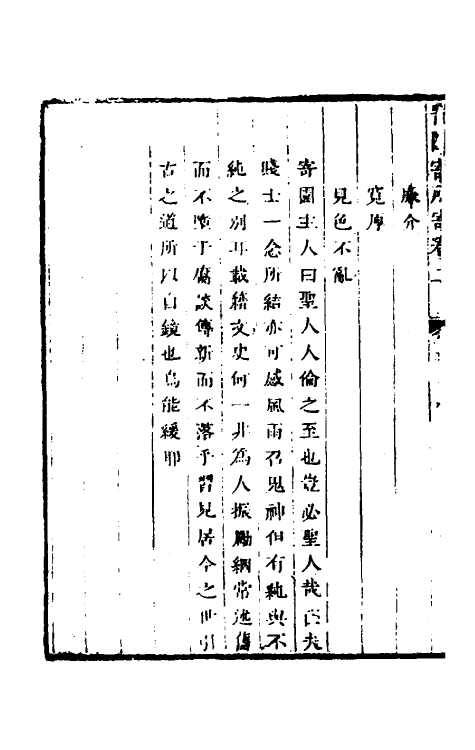 寄園寄所寄卷二
廉介
寬厚
見色不亂
寄園主人曰聖人人倫之至也豈必聖人哉匹夫
賤士一念所結亦可感風雨召鬼神但有純與不
純之別耳載籍文史何一非為人振勵綱常進傳
而不墮于腐談傳新而不落乎習見居今之世引
古之道所以自鏡也烏能緩耶